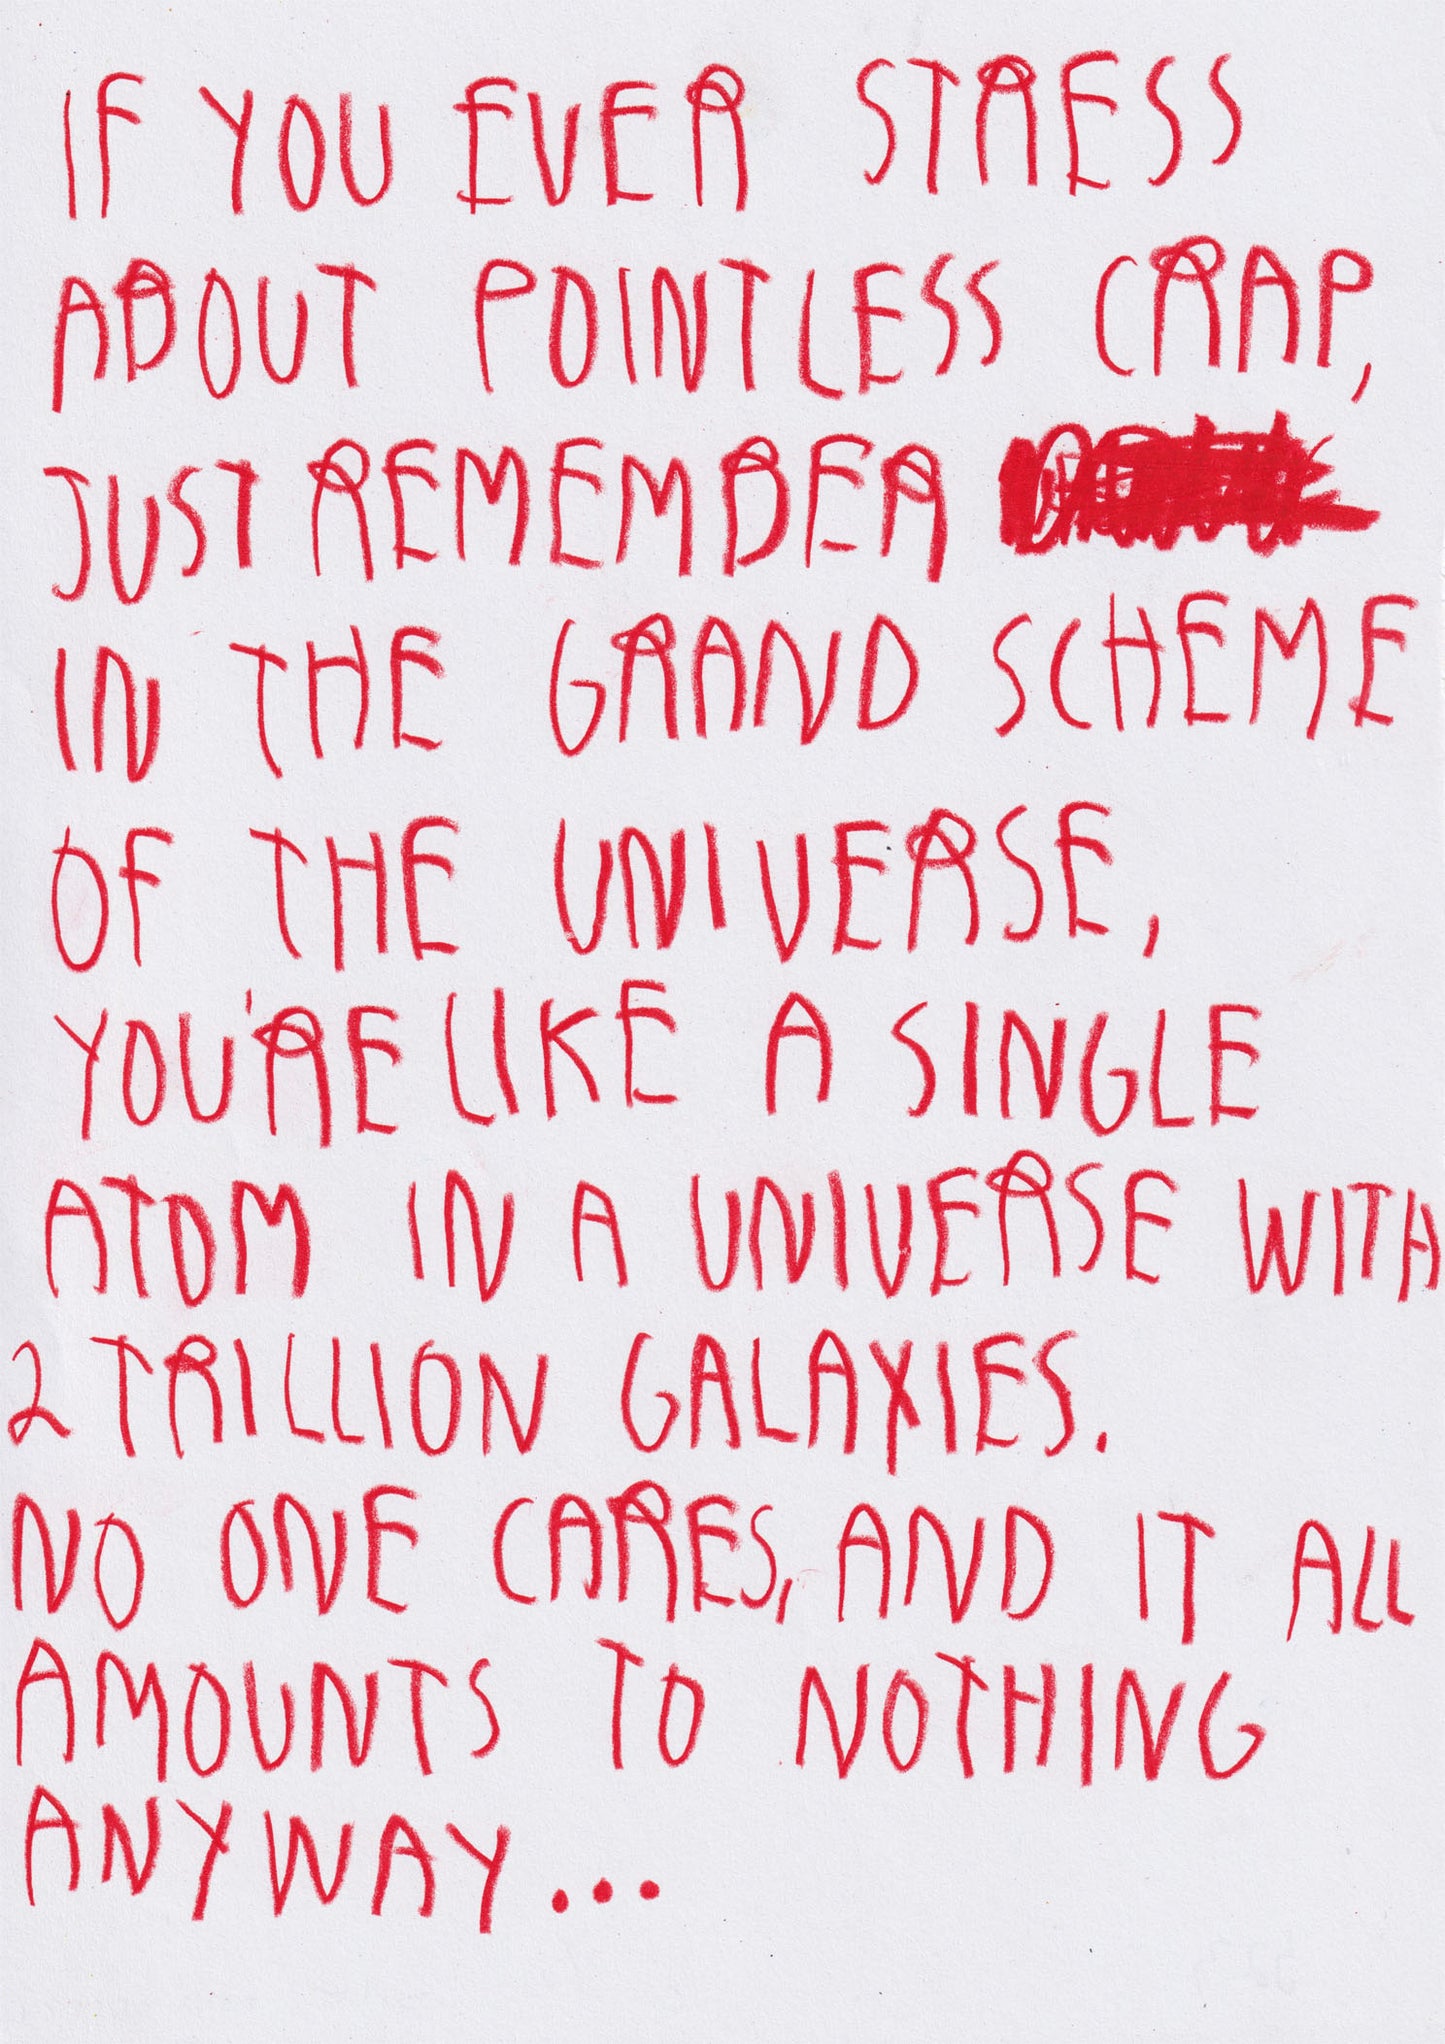 IF YOU EVER STRESS
ABOUT POINTLESS CRAP,
JUST REMEMBER
IN THE GRAND SCHEME
OF THE UNIVERSE,
YOU'RE LIKE A SINGLE
ATOM IN A UNIVERSE WITH
2 TRILLION GALAXIES.
NO ONE CARES, AND IT ALL
AMOUNTS TO NOTHING
ANYWAY...